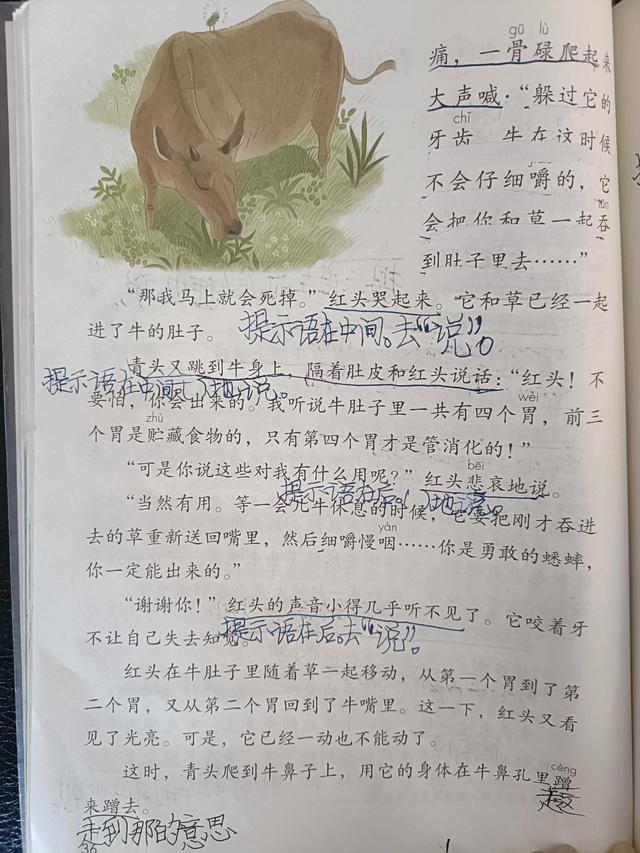 gū lù
痛，一骨碌爬起来
大声喊：“躲过它的
chǐ
牙齿 牛在这时候
不会仔细嚼的，它
tūn
会把你和草一起吞
到肚子里去……”
“那我马上就会死掉。”红头哭起来。它和草已经一起
进了牛的肚子。 提示语在中间。去“说”。
青头又跳到牛身上，隔着肚皮和红头说话：“红头！不
提示语在中间（）地说。
要怕，你会出来的。我听说牛肚子里一共有四个胃，前三
wèi
zhù
个胃是贮藏食物的，只有第四个胃才是管消化的！”
bēi
“可是你说这些对我有什么用呢？”红头悲哀地说。
提示语在后。（）地说。
“当然有用。等一会儿牛休息的时候，它要把刚才吞进
yàn
去的草重新送回嘴里，然后细嚼慢咽……你是勇敢的蟋蟀，
你一定能出来的。”
“谢谢你！”红头的声音小得几乎听不见了。它咬着牙
不让自己失去知觉。 提示语在后。去“说”。
红头在牛肚子里随着草一起移动，从第一个胃到了第
二个胃，又从第二个胃回到了牛嘴里。这一下，红头又看
见了光亮。可是，它已经一动也不能动了。
cèng
这时，青头爬到牛鼻子上，用它的身体在牛鼻孔里蹭
来蹭去。
走到那的意思
36